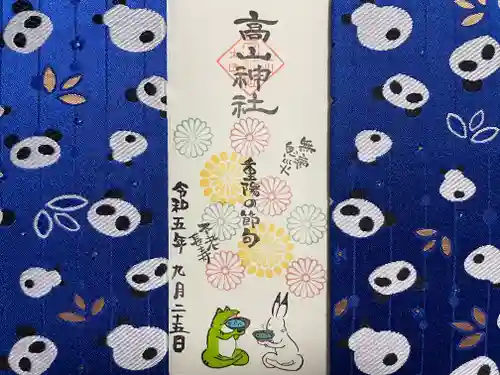 高山神社
無病息災
重陽の節句
不老長寿
令和五年 九月二十五日